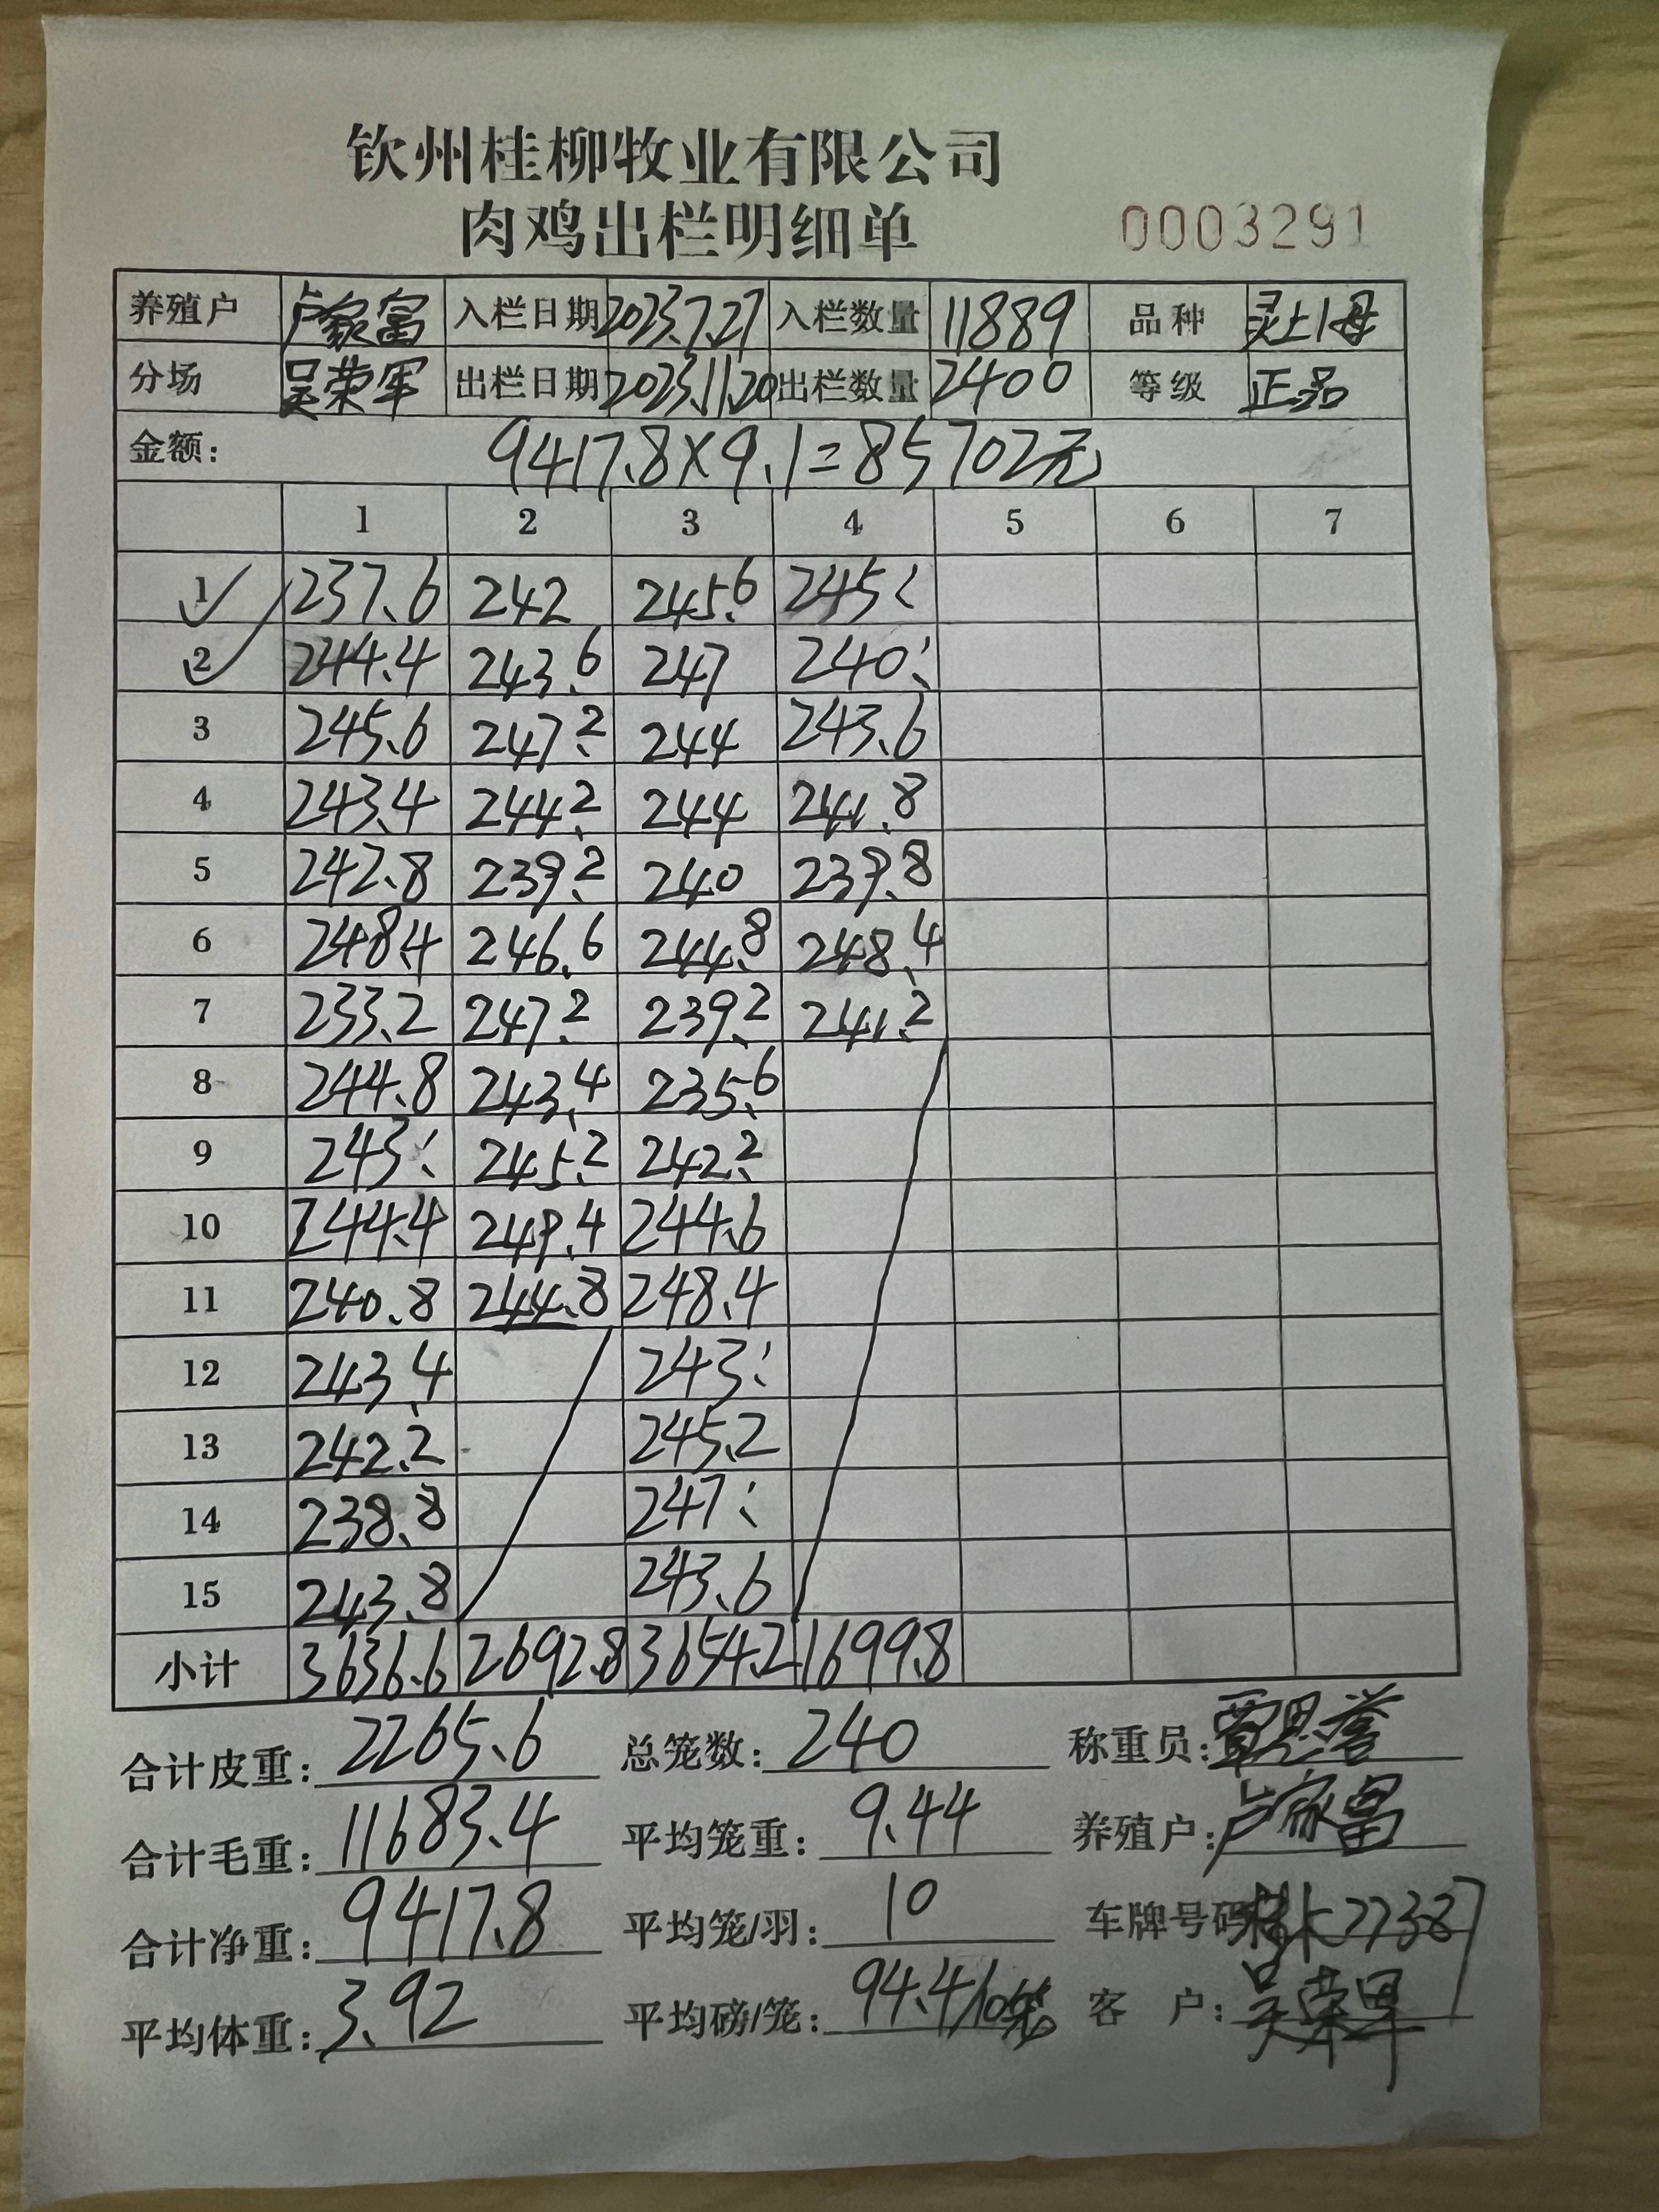 钦州桂柳牧业有限公司
肉鸡出栏明细单 0003291
养殖户 卢家富 入栏日期 2023.7.27 入栏数量 11889 品种 灵土1母
分场 吴荣军 出栏日期 2023.11.20 出栏数量 2400 等级 正品
金额: 9417.8×9.1=85702元
1 2 3 4 5 6 7
1 237.6 242 245.6 245
2 244.4 243.6 247 240
3 245.6 247.2 244 243.6
4 243.4 244.2 244 241.8
5 242.8 239.2 240 239.8
6 248.4 246.6 244.8 248.4
7 233.2 247.2 239.2 241.2
8 244.8 243.4 235.6
9 243 245.2 242.2
10 244.4 249.4 244.6
11 240.8 244.8 248.4
12 243.4 243
13 242.2 245.2
14 238.8 247
15 243.8 243.6
小计 3636.6 2692.8 3654.2 1699.8
合计皮重: 2265.6 总笼数: 240 称重员:
合计毛重: 11683.4 平均笼重: 9.44 养殖户: 卢家富
合计净重: 9417.8 平均笼/羽: 10 车牌号码
平均体重: 3.92 平均磅/笼: 94.4/10笼 客户: 吴荣军